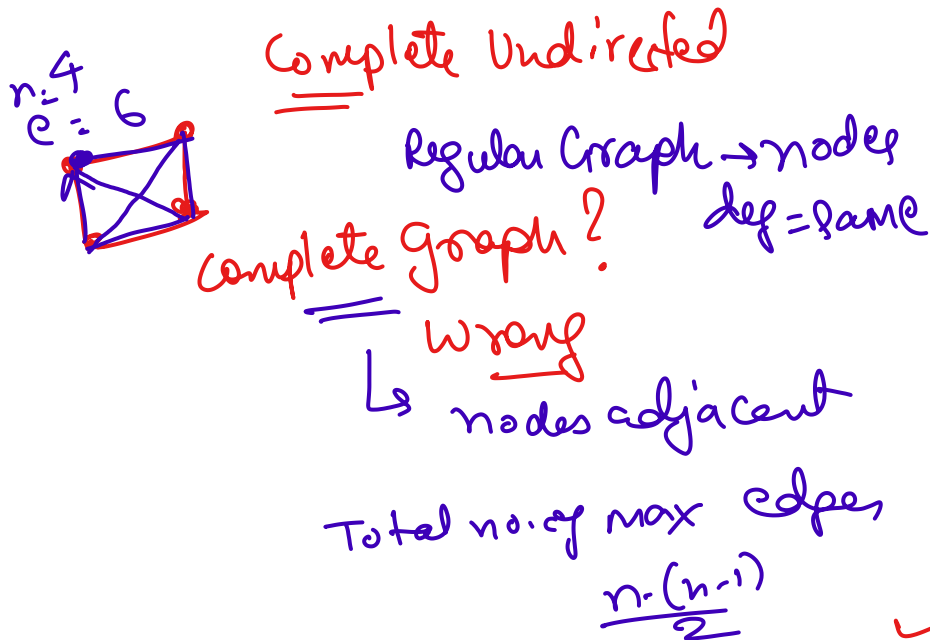 Complete Undirected
n=4
e = 6
Regular Graph → nodes
deg = same
Complete Graph?
Wrong
↳ nodes adjacent
Total no. of max edges
n.(n-1)
2